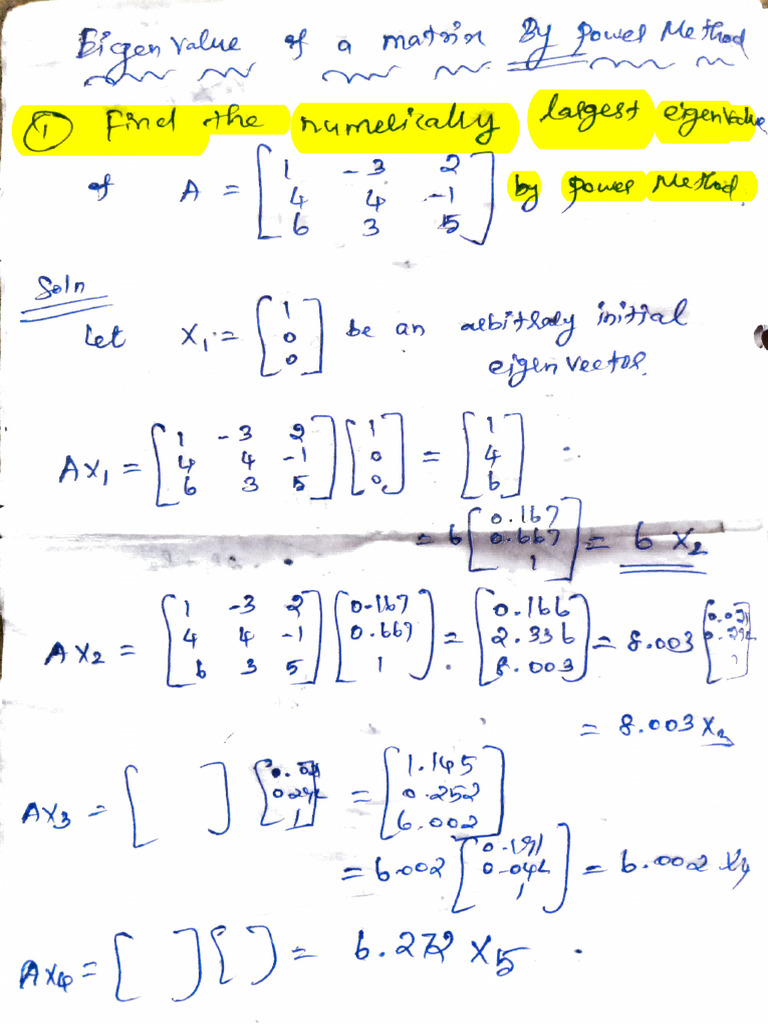 Eigen Value of a matrix By Power Method
① Find the numerically largest eigenvalue
of A = [1 -3 2; 4 4 -1; 6 3 5] by power Method.
Soln
Let X₁ = [1; 0; 0] be an arbitrary initial
eigen vector.
AX₁ = [1 -3 2; 4 4 -1; 6 3 5] [1; 0; 0] = [1; 4; 6]
= 6 [0.167; 0.667; 1] = 6 X₂
AX₂ = [1 -3 2; 4 4 -1; 6 3 5] [0.167; 0.667; 1] = [0.166; 2.336; 8.003] = 8.003
= 8.003 X₃
AX₃ = [ ] [1] = [1.145; 0.252; 6.002]
= 6.002 [0.191; 0.042; 1] = 6.002 X₄
AX₄ = [ ] [ ] = 6.272 X₅